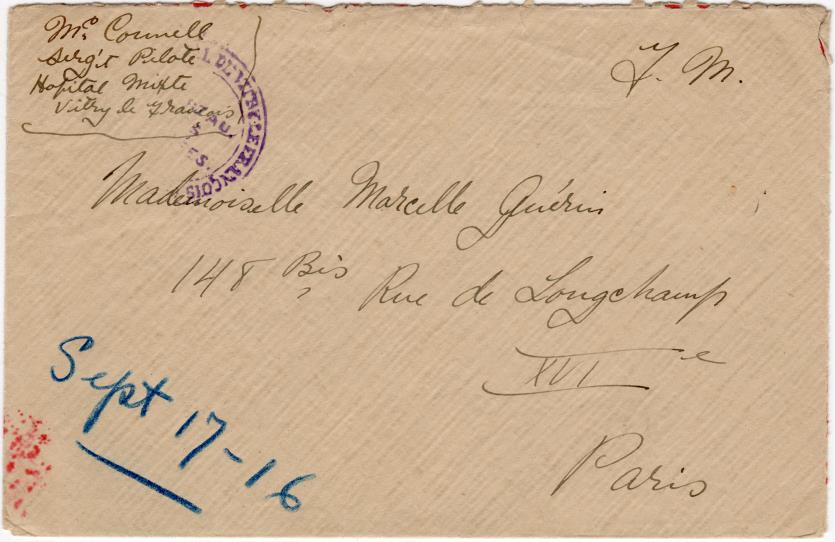 Mc Connell
Serg't Pilote
Hopital Mixte
Vitry le Francois
F. M.
L DE VITRY-LE-FRANÇOIS
Mademoiselle Marcelle Guérin
148 Bis Rue de Longchamp
XVI e
Paris
Sept 17-16